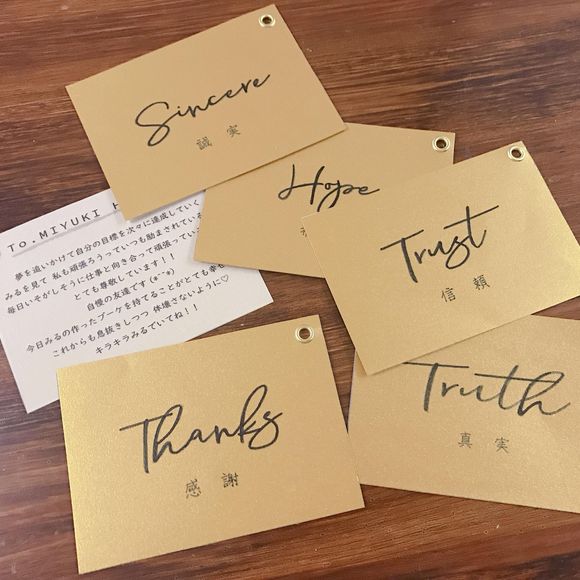 Sincere
誠 実
Hope
Trust
信 頼
To.MIYUKI
夢を追いかけて自分の目標を次々に達成していく
みるを見て 私も頑張ろうっていつも励まされている
毎日いそがしそうに仕事と向き合って頑張ってい
とても尊敬しています!!
自慢の友達です(*^^*)
今日みるの作ったブーケを持てることがとても幸せ
これからも息抜きしつつ 体壊さないように♡
キラキラみるでいてね!!
Truth
真 実
Thanks
感 謝